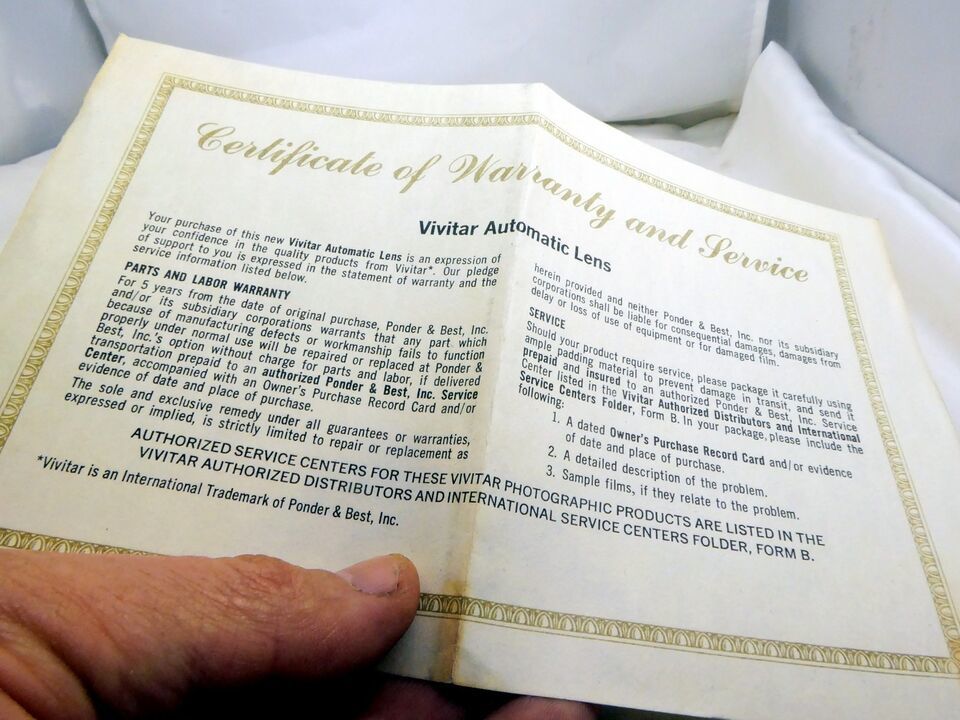 Certificate of Warranty and Service
Vivitar Automatic Lens
Your purchase of this new Vivitar Automatic Lens is an expression of
your confidence in the quality products from Vivitar*. Our pledge
of support to you is expressed in the statement of warranty and the
service information listed below.
PARTS AND LABOR WARRANTY
For 5 years from the date of original purchase, Ponder & Best, Inc.
and/or its subsidiary corporations warrants that any part which
because of manufacturing defects or workmanship fails to function
properly under normal use will be repaired or replaced at Ponder &
Best, Inc.'s option without charge for parts and labor, if delivered
transportation prepaid to an authorized Ponder & Best, Inc. Service
Center, accompanied with an Owner's Purchase Record Card and/or
evidence of date and place of purchase.
The sole and exclusive remedy under all guarantees or warranties,
expressed or implied, is strictly limited to repair or replacement as
herein provided and neither Ponder & Best, Inc. nor its subsidiary
corporations shall be liable for consequential damages, damages from
delay or loss of use of equipment or for damaged film.
SERVICE
Should your product require service, please package it carefully using
ample padding material to prevent damage in transit, and send it
prepaid and insured to an authorized Ponder & Best, Inc. Service
Center listed in the Vivitar Authorized Distributors and International
Service Centers Folder, Form B. In your package, please include the
following:
1. A dated Owner's Purchase Record Card and/or evidence
of date and place of purchase.
2. A detailed description of the problem.
3. Sample films, if they relate to the problem.
AUTHORIZED SERVICE CENTERS FOR THESE VIVITAR PHOTOGRAPHIC PRODUCTS ARE LISTED IN THE
VIVITAR AUTHORIZED DISTRIBUTORS AND INTERNATIONAL SERVICE CENTERS FOLDER, FORM B.
*Vivitar is an International Trademark of Ponder & Best, Inc.